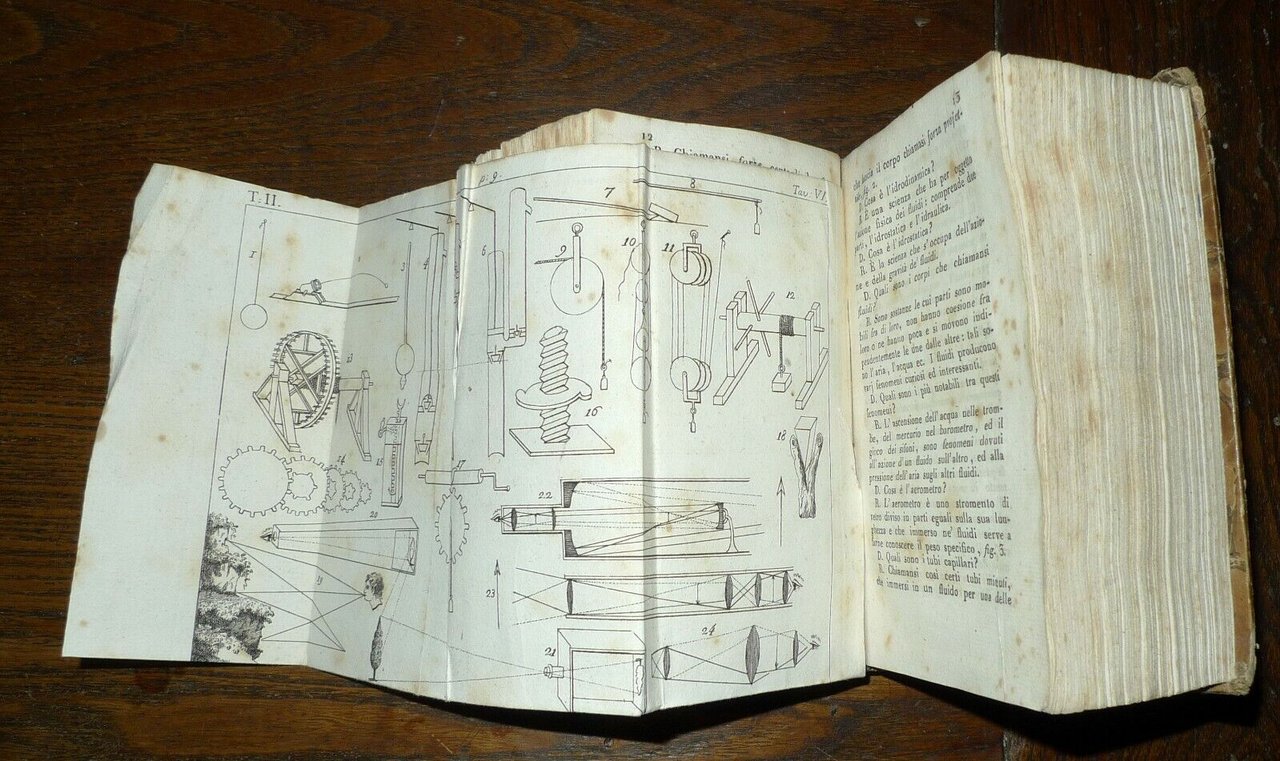 T. II.
p. 9
Tav. VI
1
2
3
4
6
7
8
9
10
11
12
13
14
15
16
17
18
19
20
21
22
23
24
12
D. Chiamansi forze
13
che lancia il corpo chiamasi forza projet-
fig. 2.
Cosa è l'idrodinamica?
È una scienza che ha per oggetto
fisica dei fluidi: comprende due
parti, l'idrostatica e l'idraulica.
D. Cosa è l'idrostatica?
R. È la scienza che s'occupa dell'azio-
ne e della gravità de' fluidi.
D. Quali sono i corpi che chiamansi
fluidi?
R. Sono sostanze le cui parti sono mo-
bili fra di loro, non hanno coesione fra
loro o ne hanno poca e si movono indi-
pendentemente le une dalle altre: tali so-
no l'aria, l'acqua ec. I fluidi producono
varj fenomeni curiosi ed interessanti.
D. Quali sono i più notabili tra questi
fenomeni?
R. L'ascensione dell'acqua nelle trom-
be, del mercurio nel barometro, ed il
gioco dei sifoni, sono fenomeni dovuti
all'azione d'un fluido sull'altro, ed alla
pressione dell'aria sugli altri fluidi.
D. Cosa è l'aerometro?
R. L'aerometro è uno stromento di
vetro diviso in parti eguali sulla sua lun-
ghezza e che immerso ne' fluidi serve a
farne conoscere il peso specifico, fig. 3.
D. Quali sono i tubi capillari?
R. Chiamansi così certi tubi minuti,
che immersi in un fluido per una delle